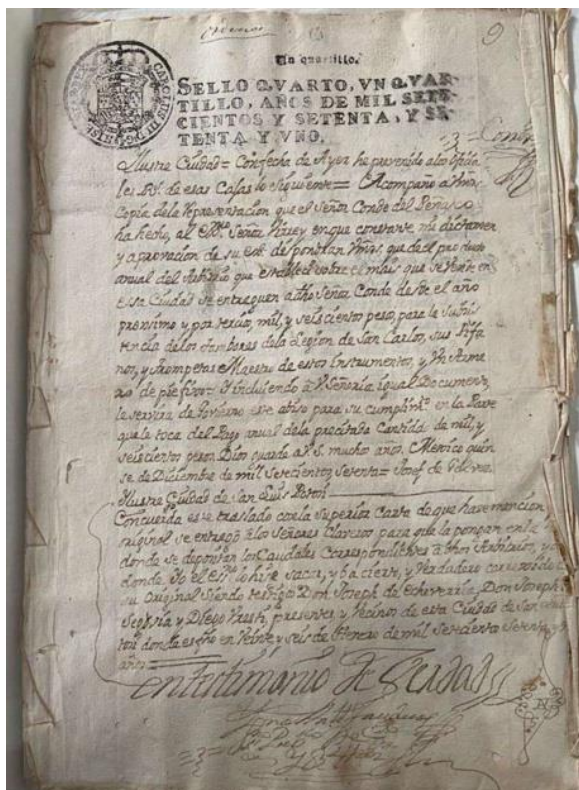 9
Un quartillo.
SELLO QVARTO, VN QVAR-
TILLO, AÑOS DE MIL SETE-
CIENTOS Y SETENTA, Y SE-
TENTA Y VNO.
Ilustre Ciudad = Con fecha de Ayer he prevenido a los Oficia
les Rs. de esas Cajas lo siguiente = Acompaño a Vms.
Copia dela Representacion que el Señor Conde del Peñasco
ha hecho, al Exmo. Señor Virrey en que constante, mi dictamen
y aprovacion de su Exa. dispondran Vms. que del producto
anual del Arbitrio que establecí sobre el mais que se vende en
essa Ciudad se entreguen a dho Señor Conde desde el año
proximo y por tercios, mil, y seiscientos pesos, para la subsis
tencia de los tambores dela Legion de San Carlos, sus Pifa
nos, y Trompetas Maestro de estos Instrumentos, y Un Arme
ro de pie fixo = Y incluiendo a V Señoria igual Documento,
le servira de Govierno este aviso para su cumplimto. en la Parte
que le toca del Pago anual dela precitada Cantidad de mil, y
seiscientos pesos. Dios guarde a V.S. muchos años. Mexico quin
se de Diciembre de mil setecientos, setenta = Josef de Galvez =
Ilustre Ciudad de San Luis Potosi
Concuerda este traslado con la Superior Carta de que hace mencion
original se entregó a los Señores Claveros para que la pongan en la
donde se depositan los Caudales Correspondientes a dhos Arbitrios, y
donde Yo el essno lo hize sacar, y ba cierto, y Verdadero corregido
su Original Siendo testigos Don Joseph de Echeverria, Don Joseph
Segovia y Diego presentes, y Vecinos de esta Ciudad de San
tosi donde es fho en Veinte, y seis de Henero de mil setecientos setenta, y
años =
en testimonio de Verdad